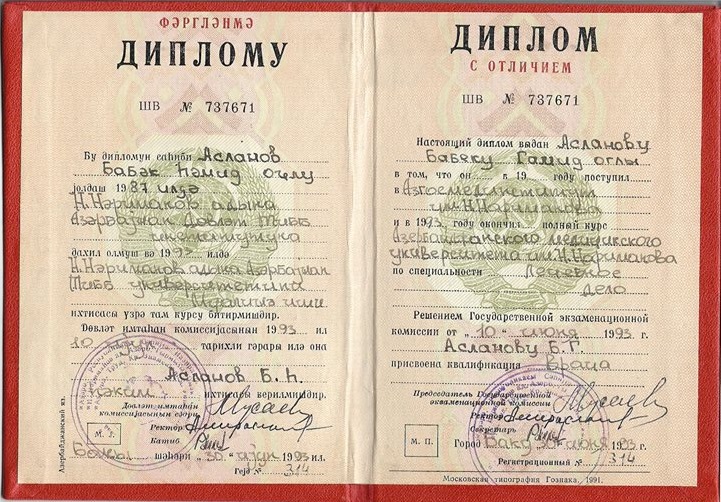 ФӘРГЛӘНМӘ
ДИПЛОМУ
ШВ № 737671
Бу дипломун саһиби Асланов
Бабәк Һәмид оғлу
јолдаш 1987 илдә
Н.Нәриманов адына
Азәрбајҹан Дөвләт Тибб
институтуна
дахил олмуш вә 1993 илдә
Н.Нәриманов адына Азәрбајҹан
Тибб университетини
Муаличә иши
ихтисасы үзрә там курсу битирмишдир.
Дөвләт имтаһан комиссијасынын 1993 ил
10 тарихли гәрары илә она
Асланов Б. Һ.
һәким ихтисасы верилмишдир.
Дөвләт имтаһан
комиссијасынын сәдри
Ректор
Катиб
М. Ј.
Бакы шәһәри "30" ијун 1993 ил.
Гејд № 314
Азербайджанский яз.
ДИПЛОМ
С ОТЛИЧИЕМ
ШВ № 737671
Настоящий диплом выдан Асланову
Бабеку Гамид оглы
в том, что он в 19 году поступил
в Азгосмединститут
им.Н.Нариманова
и в 1993 году окончил полный курс
Азербайджанского медицинского
университета им.Н.Нариманова
по специальности Лечебное
дело
Решением Государственной экзаменационной
комиссии от "10" июня 1993 г.
Асланову Б.Г.
присвоена квалификация врача
Председатель Государственной
экзаменационной комиссии
Ректор
Секретарь
М. П.
Город Баку 30 июня 1993 г.
Регистрационный № 314
Московская типография Гознака. 1991.